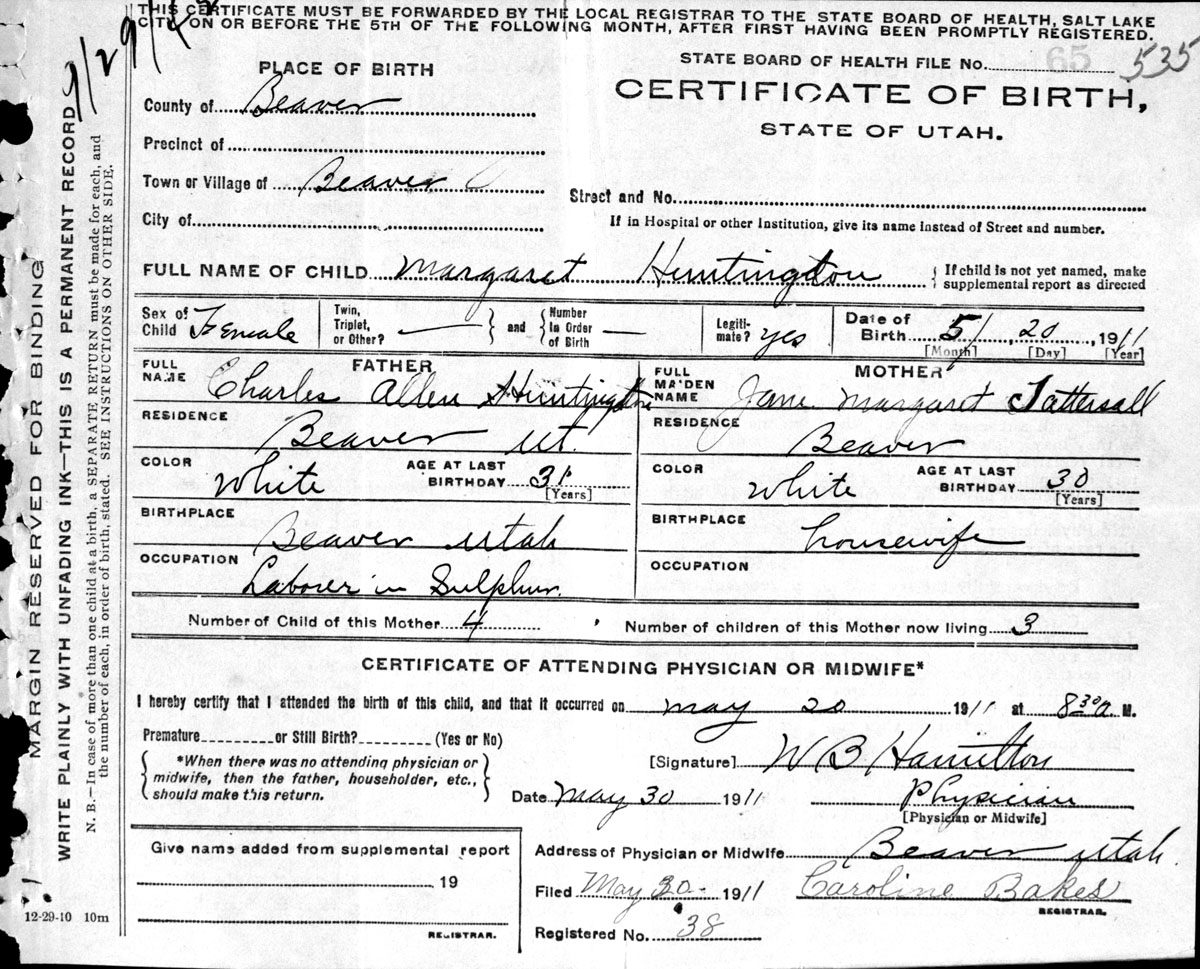 THIS CERTIFICATE MUST BE FORWARDED BY THE LOCAL REGISTRAR TO THE STATE BOARD OF HEALTH, SALT LAKE
CITY, ON OR BEFORE THE 5TH OF THE FOLLOWING MONTH, AFTER FIRST HAVING BEEN PROMPTLY REGISTERED.
STATE BOARD OF HEALTH FILE No. 65 535
PLACE OF BIRTH
CERTIFICATE OF BIRTH,
STATE OF UTAH.
County of Beaver
Precinct of
Town or Village of Beaver
Street and No.
City of
If in Hospital or other Institution, give its name instead of Street and number.
FULL NAME OF CHILD Margaret Huntington { If child is not yet named, make
supplemental report as directed
Sex of Child Female Twin, Triplet, or Other? — } and { Number in Order of Birth — Legiti-mate? yes Date of Birth 5/ 20 1911
[Month] [Day] [Year]
FATHER
FULL NAME Charles Allen Huntington
RESIDENCE Beaver Ut.
COLOR White AGE AT LAST BIRTHDAY 31 [Years]
BIRTHPLACE Beaver Utah
OCCUPATION Laborer in Sulphur.
MOTHER
FULL MAIDEN NAME Jane Margaret Tattersall
RESIDENCE Beaver
COLOR White AGE AT LAST BIRTHDAY 30 [Years]
BIRTHPLACE housewife
OCCUPATION
Number of Child of this Mother 4 Number of children of this Mother now living 3
CERTIFICATE OF ATTENDING PHYSICIAN OR MIDWIFE*
I hereby certify that I attended the birth of this child, and that it occurred on May 20 1911 at 8 30 a. M.
Premature or Still Birth? (Yes or No)
{ *When there was no attending physician or
midwife, then the father, householder, etc.,
should make this return. }
[Signature] W B Hamilton
Date May 30 1911 Physician
[Physician or Midwife]
Give name added from supplemental report
19
REGISTRAR.
Address of Physician or Midwife Beaver Utah.
Filed May 30 1911 Caroline Bakes
REGISTRAR.
Registered No. 38
12-29-10 10m
MARGIN RESERVED FOR BINDING
WRITE PLAINLY WITH UNFADING INK—THIS IS A PERMANENT RECORD
N. B.—In case of more than one child at a birth, a SEPARATE RETURN must be made for each, and
the number of each, in order of birth, stated. SEE INSTRUCTIONS ON OTHER SIDE.